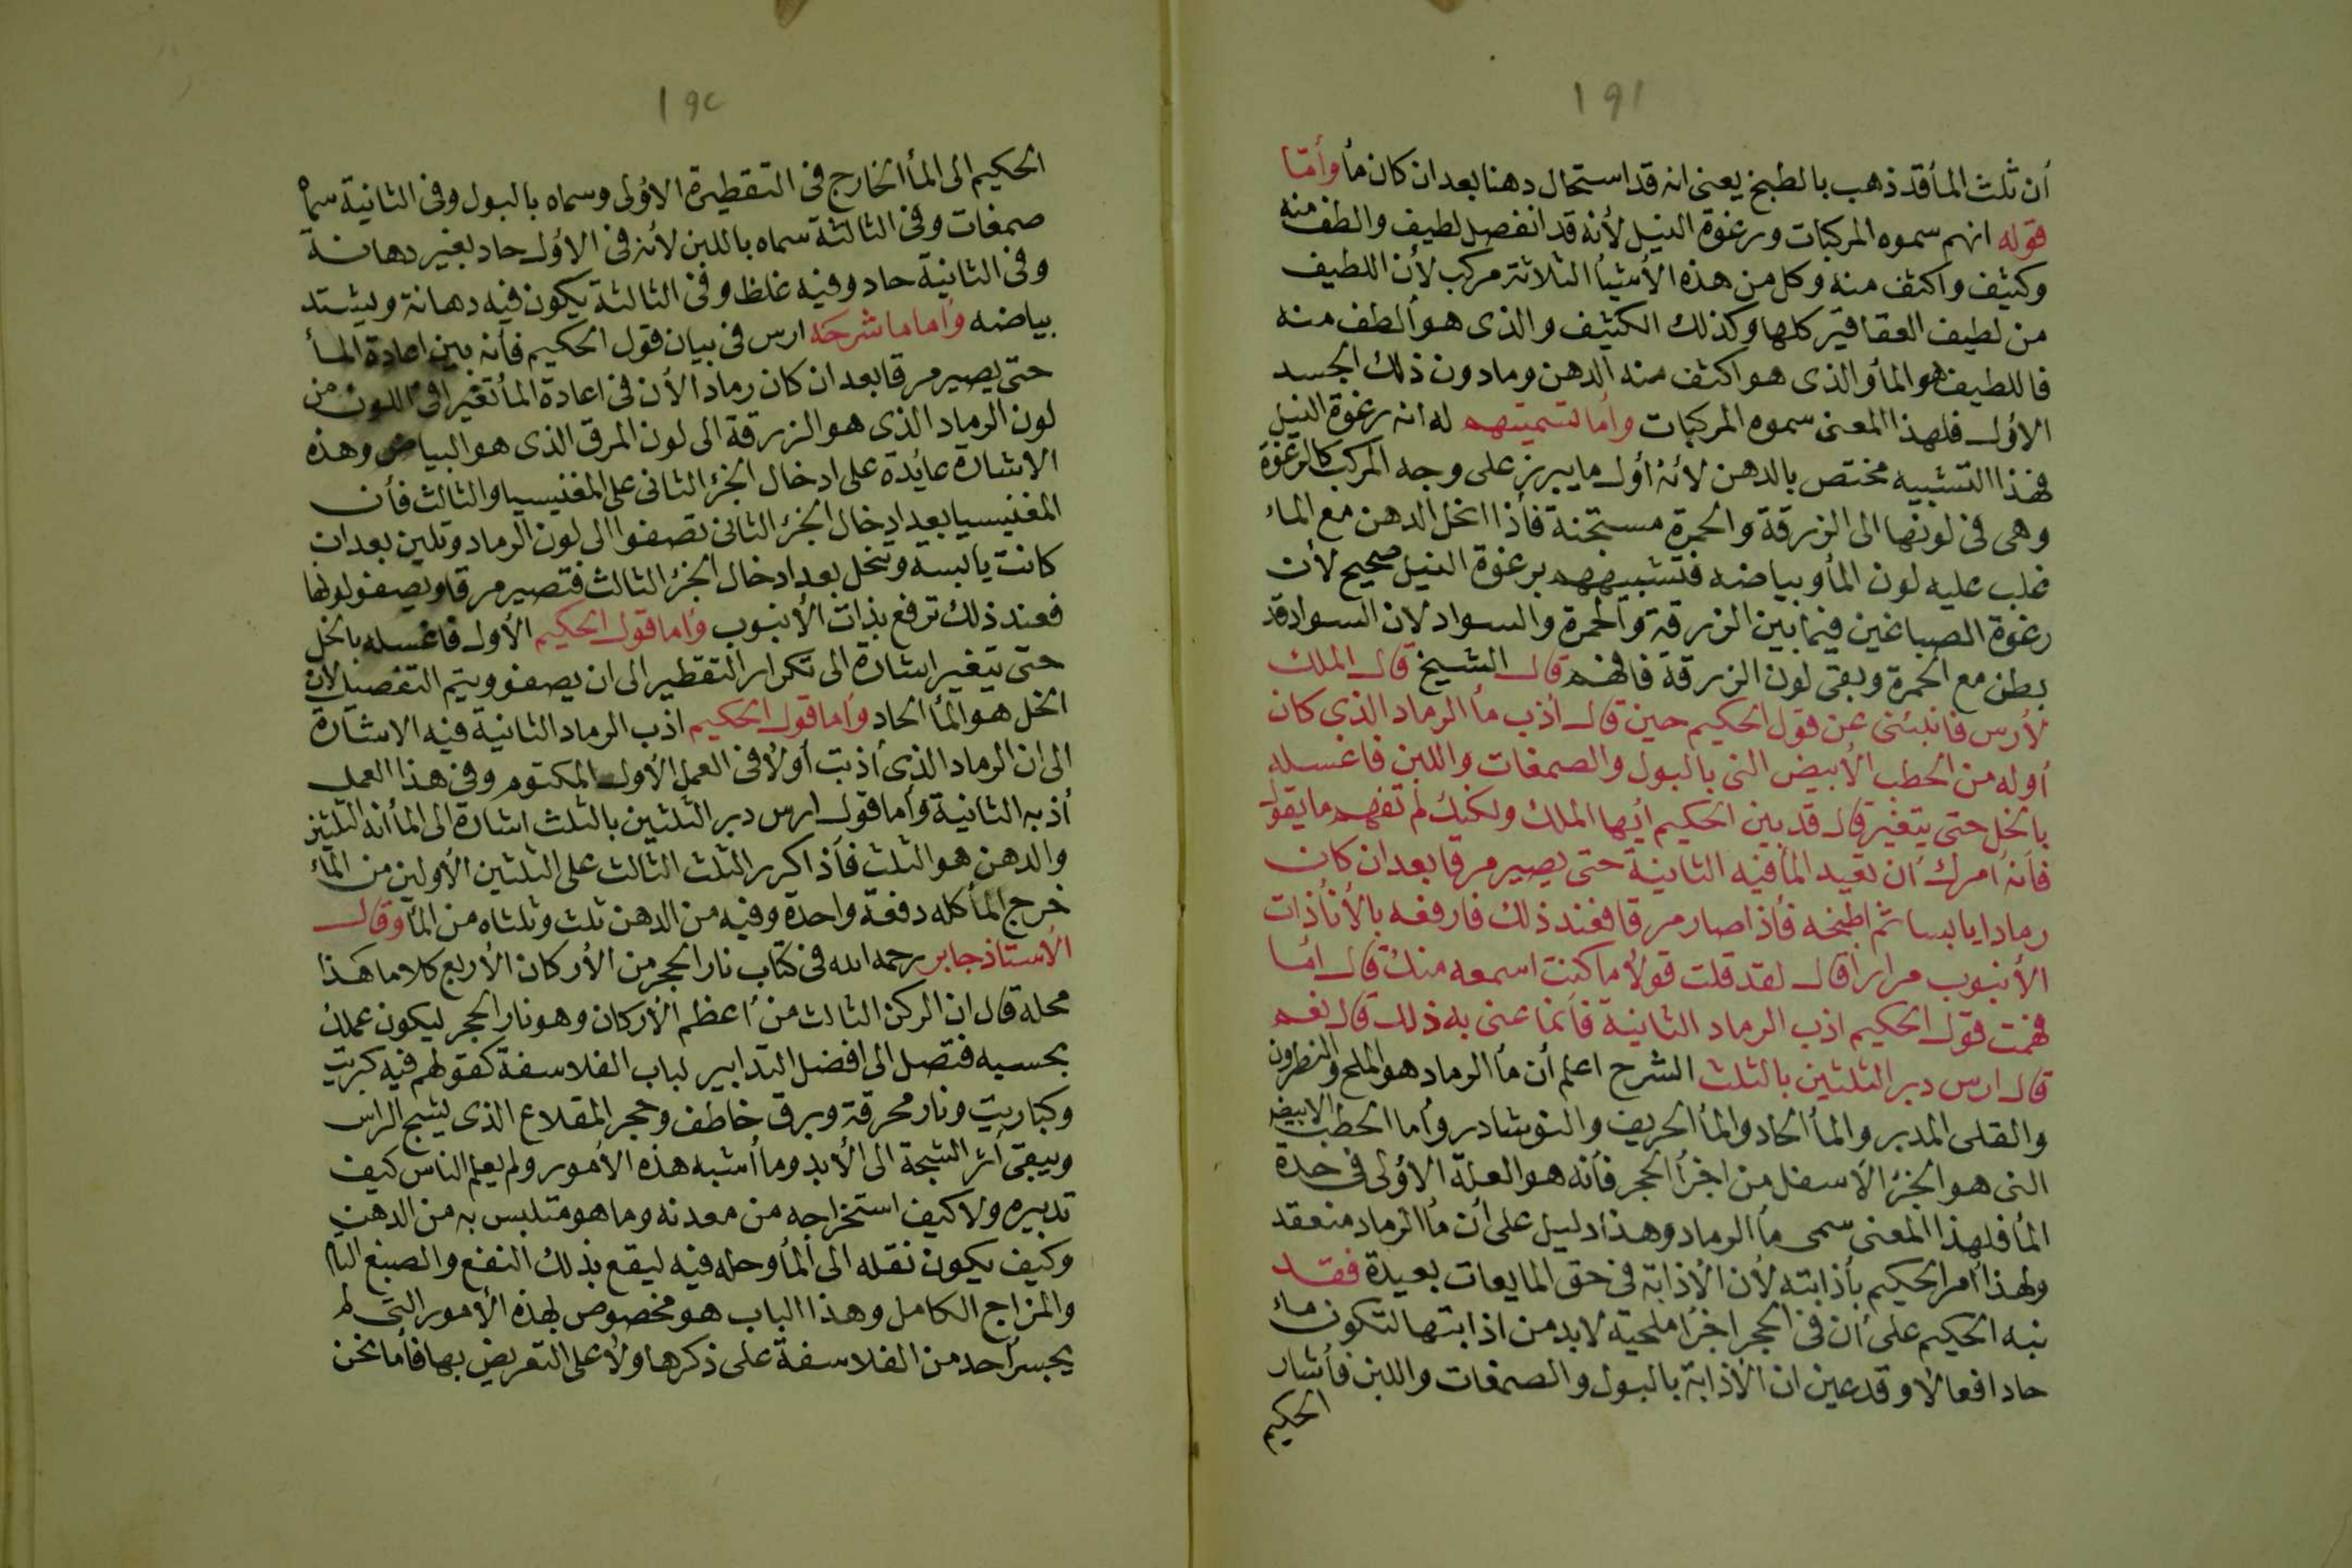 ١٩١
أن ثلث المأ قد ذهب بالطبخ يعنى انه قد استحال دهنا بعد ان كان مأ وأمّا
قوله انهم سموه المركبات ورغوة النيل لأنه قد انفصل لطيف والطف منه
وكثيف واكثف منه وكل من هذه الأشيأ الثلاثة مركب لأن اللطيف
من لطيف العقاقير كلها وكذلك الكثيف والذى هو ألطف منه
فاللطيف هو المأ والذى هو اكثف منه الدهن وما دون ذلك الجسد
الأول فلهذا المعنى سموه المركبات وأما لتسميتهم له انه رغوة النيل
فهذا التشبيه مختص بالدهن لأنه أول ما يبرز على وجه المركب كالرغوة
وهى فى لونها الى الزرقة والحمرة مستجنة فأذا انحل الدهن مع الماء
غلب عليه لون المأ وبياضه فتشبيههم برغوة النيل صحيح لأن
رغوة الصباغين فيما بين الزرقة والحمرة والسواد لان السواد قد
بطن مع الحمرة وبقى لون الزرقة فافهم قال الشيخ قال الملك
لأرس فانبئنى عن قول الحكيم حين قال أذب مأ الرماد الذى كان
أوله من الحطب الأبيض النى بالبول والصمغات واللبن فاغسله
بالخل حتى يتغير قال قد بين الحكيم أيها الملك ولكنك لم تفهم ما يقول
فأنه أمرك أن تعيد المأ فيه الثانية حتى يصير مرقا بعد ان كان
رمادا يابسا ثم اطبخه فأذا صار مرقا فعند ذلك فارفعه بالأنأ ذات
الأنبوب مرارا قال لقد قلت قولا ما كنت اسمعه منك قال أما
فهمت قول الحكيم اذب الرماد الثانية فأنما عنى به ذلك قال نعم
قال ارس دبر الثلثين بالثلث الشرح اعلم أن مأ الرماد هو الملح والنطرون
والقلى المدبر والمأ الحاد والمأ الحريف والنوشادر وأما الحطب الابيض
النى هو الجزء الأسفل من اجزأ الحجر فأنه هو العلة الأولى فى حدة
المأ فلهذا المعنى سمى مأ الرماد وهذا دليل على أن مأ الرماد منعقد
ولهذا أمر الحكيم بأذابته لأن الأذابة فى حق المايعات بعيدة فقد
نبه الحكيم على أن فى الحجر اجزأ ملحية لابد من اذابتها لتكون ماء
حادا فعالا وقد عين ان الأذابة بالبول والصمغات واللبن فأشار
الحكيم
١٩٢
الحكيم الى المأ الخارج فى التقطيرة الأولى وسماه بالبول وفى الثانية سماه
صمغات وفى الثالثة سماه باللبن لأنه فى الأول حاد بغير دهانة
وفى الثانية حاد وفيه غلظ وفى الثالثة يكون فيه دهانة ويشتد
بياضه وأما ما شرحه ارس فى بيان قول الحكيم فأنه بين اعادة المأ
حتى يصير مرقا بعد ان كان رمادا لأن فى اعادة المأ تغيرا فى اللون من
لون الرماد الذى هو الزرقة الى لون المرق الذى هو البياض وهذه
الاشارة عايدة على ادخال الجزء الثانى على المغنيسيا والثالث فأن
المغنيسيا بعد ادخال الجزء الثانى تصفوا الى لون الرماد وتلين بعد ان
كانت يابسة وتنحل بعد ادخال الجزء الثالث فتصير مرقا ويصفو لونها
فعند ذلك ترفع بذات الأنبوب وأما قول الحكيم الأول فاغسله بالخل
حتى يتغير اشارة الى تكرار التقطير الى ان يصفو ويتم التفصيل لأن
الخل هو المأ الحاد وأما قول الحكيم اذب الرماد الثانية فيه الاشارة
الى ان الرماد الذى أذبت أولا فى العمل الأول المكتوم وفى هذا العمل
أذبه الثانية وأما قول ارس دبر الثلثين بالثلث اشارة الى المأ أنه الثلثين
والدهن هو الثلث فأذا كرر الثلث الثالث على الثلثين الأولين من الماء
خرج المأ كله دفعة واحدة وفيه من الدهن ثلث وثلثاه من المأ وقال
الأستاذ جابر رحمه الله فى كتاب نار الحجر من الأركان الأربع كلاما هذا
محله قال ان الركن الثالث من أعظم الأركان وهو نار الحجر ليكون عملك
بحسبه فتصل الى افضل التدابير لباب الفلاسفة كقولهم فيه كبريت
وكباريت ونار محرقة وبرق خاطف وحجر المقلاع الذى يشج الراس
ويبقى أثر الشجة الى الأبد وما أشبه هذه الأمور ولم يعلم الناس كيف
تدبيره ولا كيف استخراجه من معدنه وما هو متلبس به من الدهن
وكيف يكون نقله الى المأ وحله فيه ليقع بذلك النفع والصبغ التام
والمزاج الكامل وهذا الباب هو مخصوص بهذه الأمور التى لم
يجسر أحد من الفلاسفة على ذكرها ولا على التعريض بها فأما نحن